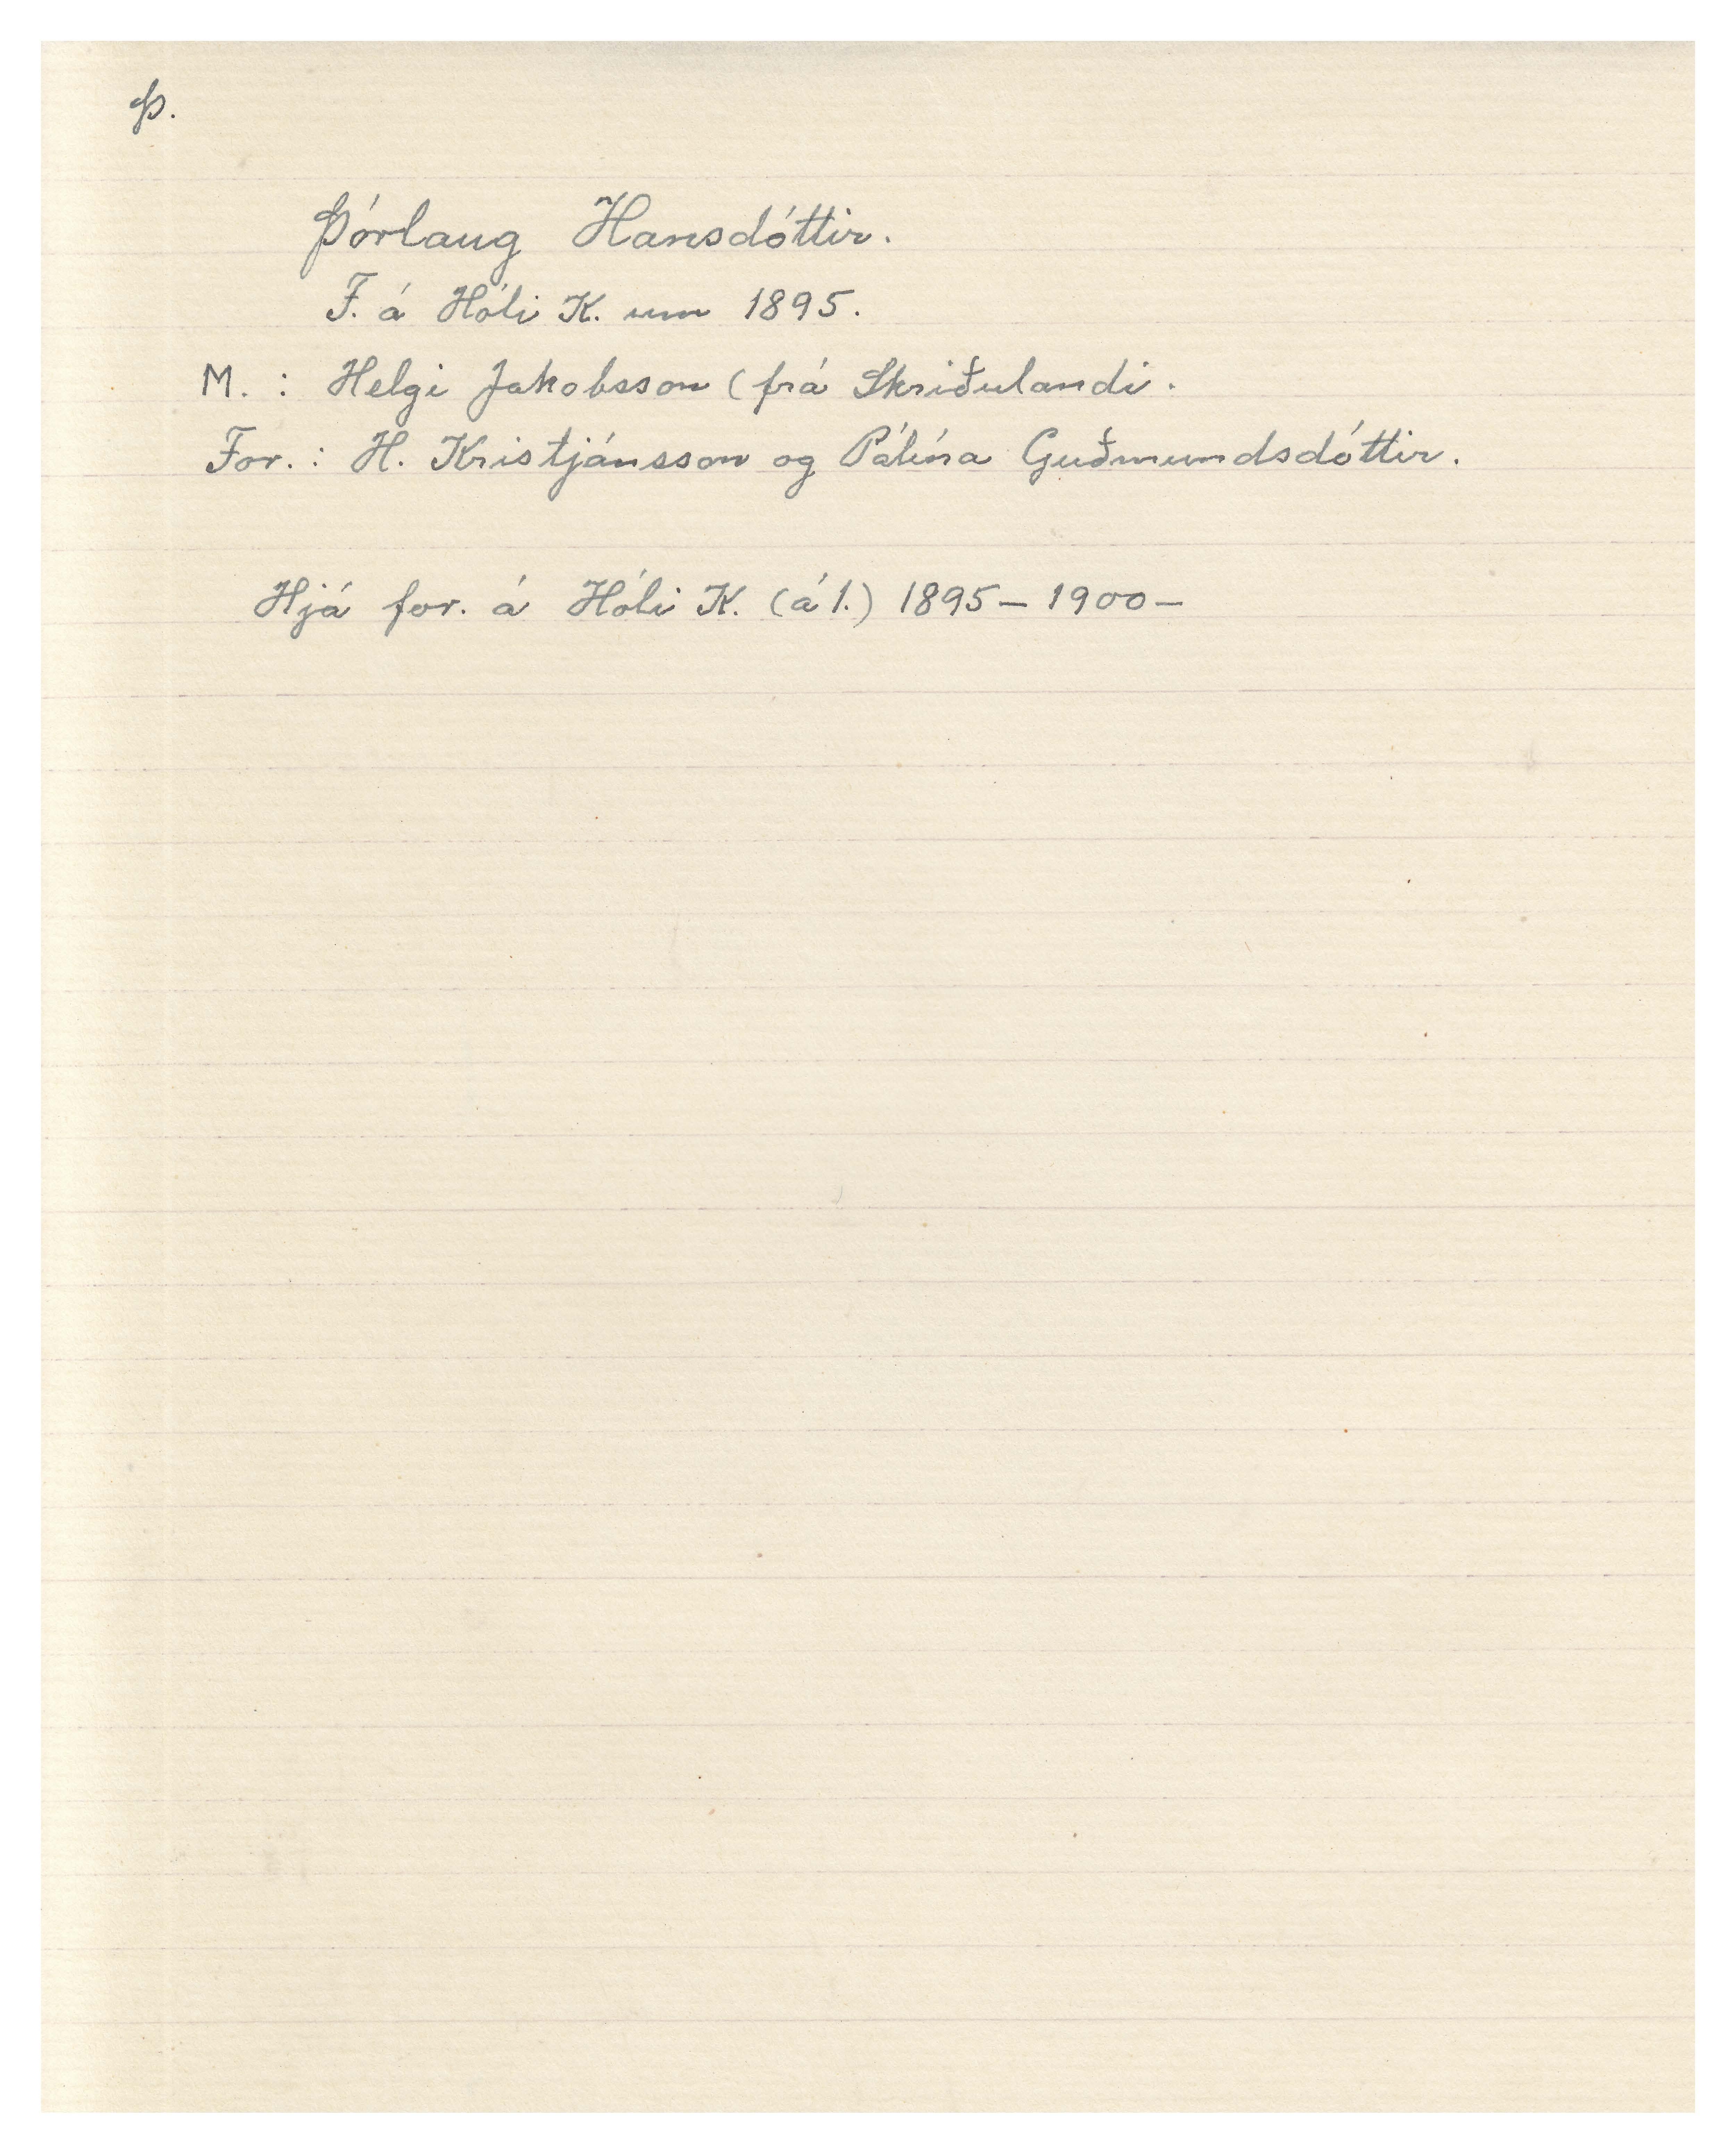 Þ.
Þórlaug Hansdóttir.
F. á Hóli K. um 1895.
M. : Helgi Jakobsson (frá Skriðulandi.
For. : H. Kristjánsson og Pálína Guðmundsdóttir.
Hjá for. á Hóli K. (á 1.) 1895 – 1900 –